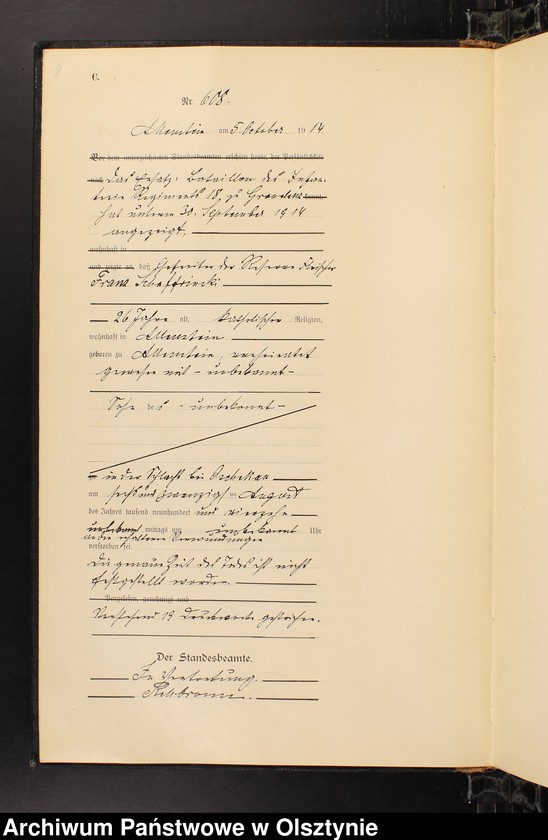 8
C.
Nr. 608.
Allenstein am 5. October 1914.
Vor dem unterzeichneten Standesbeamten erschien heute, der Persönlichkeit
nach Das Ersatz-Bataillon des Infan-
terie Regiments 18, zu Graudenz kannt,
hat unterm 30. September 1914
angezeigt,
wohnhaft in
und zeigte an, daß Gefreiter der Reserve Fleischer
Franz
26 Jahre alt, katholischer Religion,
wohnhaft in Allenstein
geboren zu Allenstein, verheiratet
gewesen mit - unbekannt -
Sohn des - unbekannt -
in der Schlacht bei
am sechsundzwanzigsten August
des Jahres tausend neunhundert und vierzehn
unbekannt mittags um unbekannt Uhr
an den erhaltenen Verwundungen
verstorben sei.
Die genaue Zeit des Todes ist nicht
festgestellt worden.
Vorgelesen, genehmigt und
Vorstehend 19 Druckworte gestrichen.
Der Standesbeamte.
In Vertretung.
Archiwum Państwowe w Olsztynie